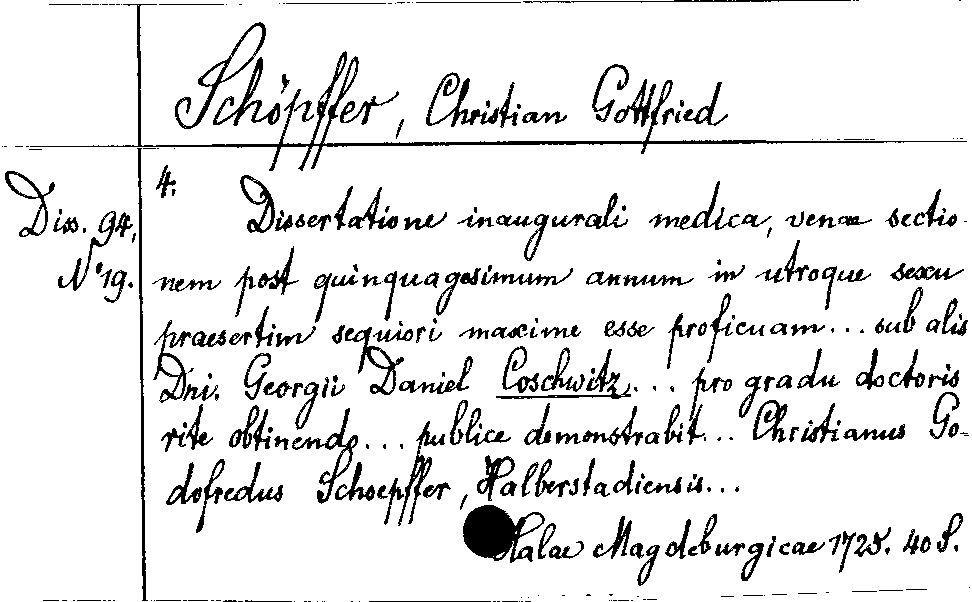 Schöpffer, Christian Gottfried
4.
Diss. 94,
N° 19.
Dissertatione inaugurali medica, venae sectio-
nem post quinquagesimum annum in utroque sexu
praesertim sequiori maxime esse proficuam... sub alis
Dni. Georgii Daniel Coschwitz... pro gradu doctoris
rite obtinendo... publice demonstrabit... Christianus Go-
dofredus Schoepffer, Halberstadiensis...
Halae Magdeburgicae 1725. 40 S.